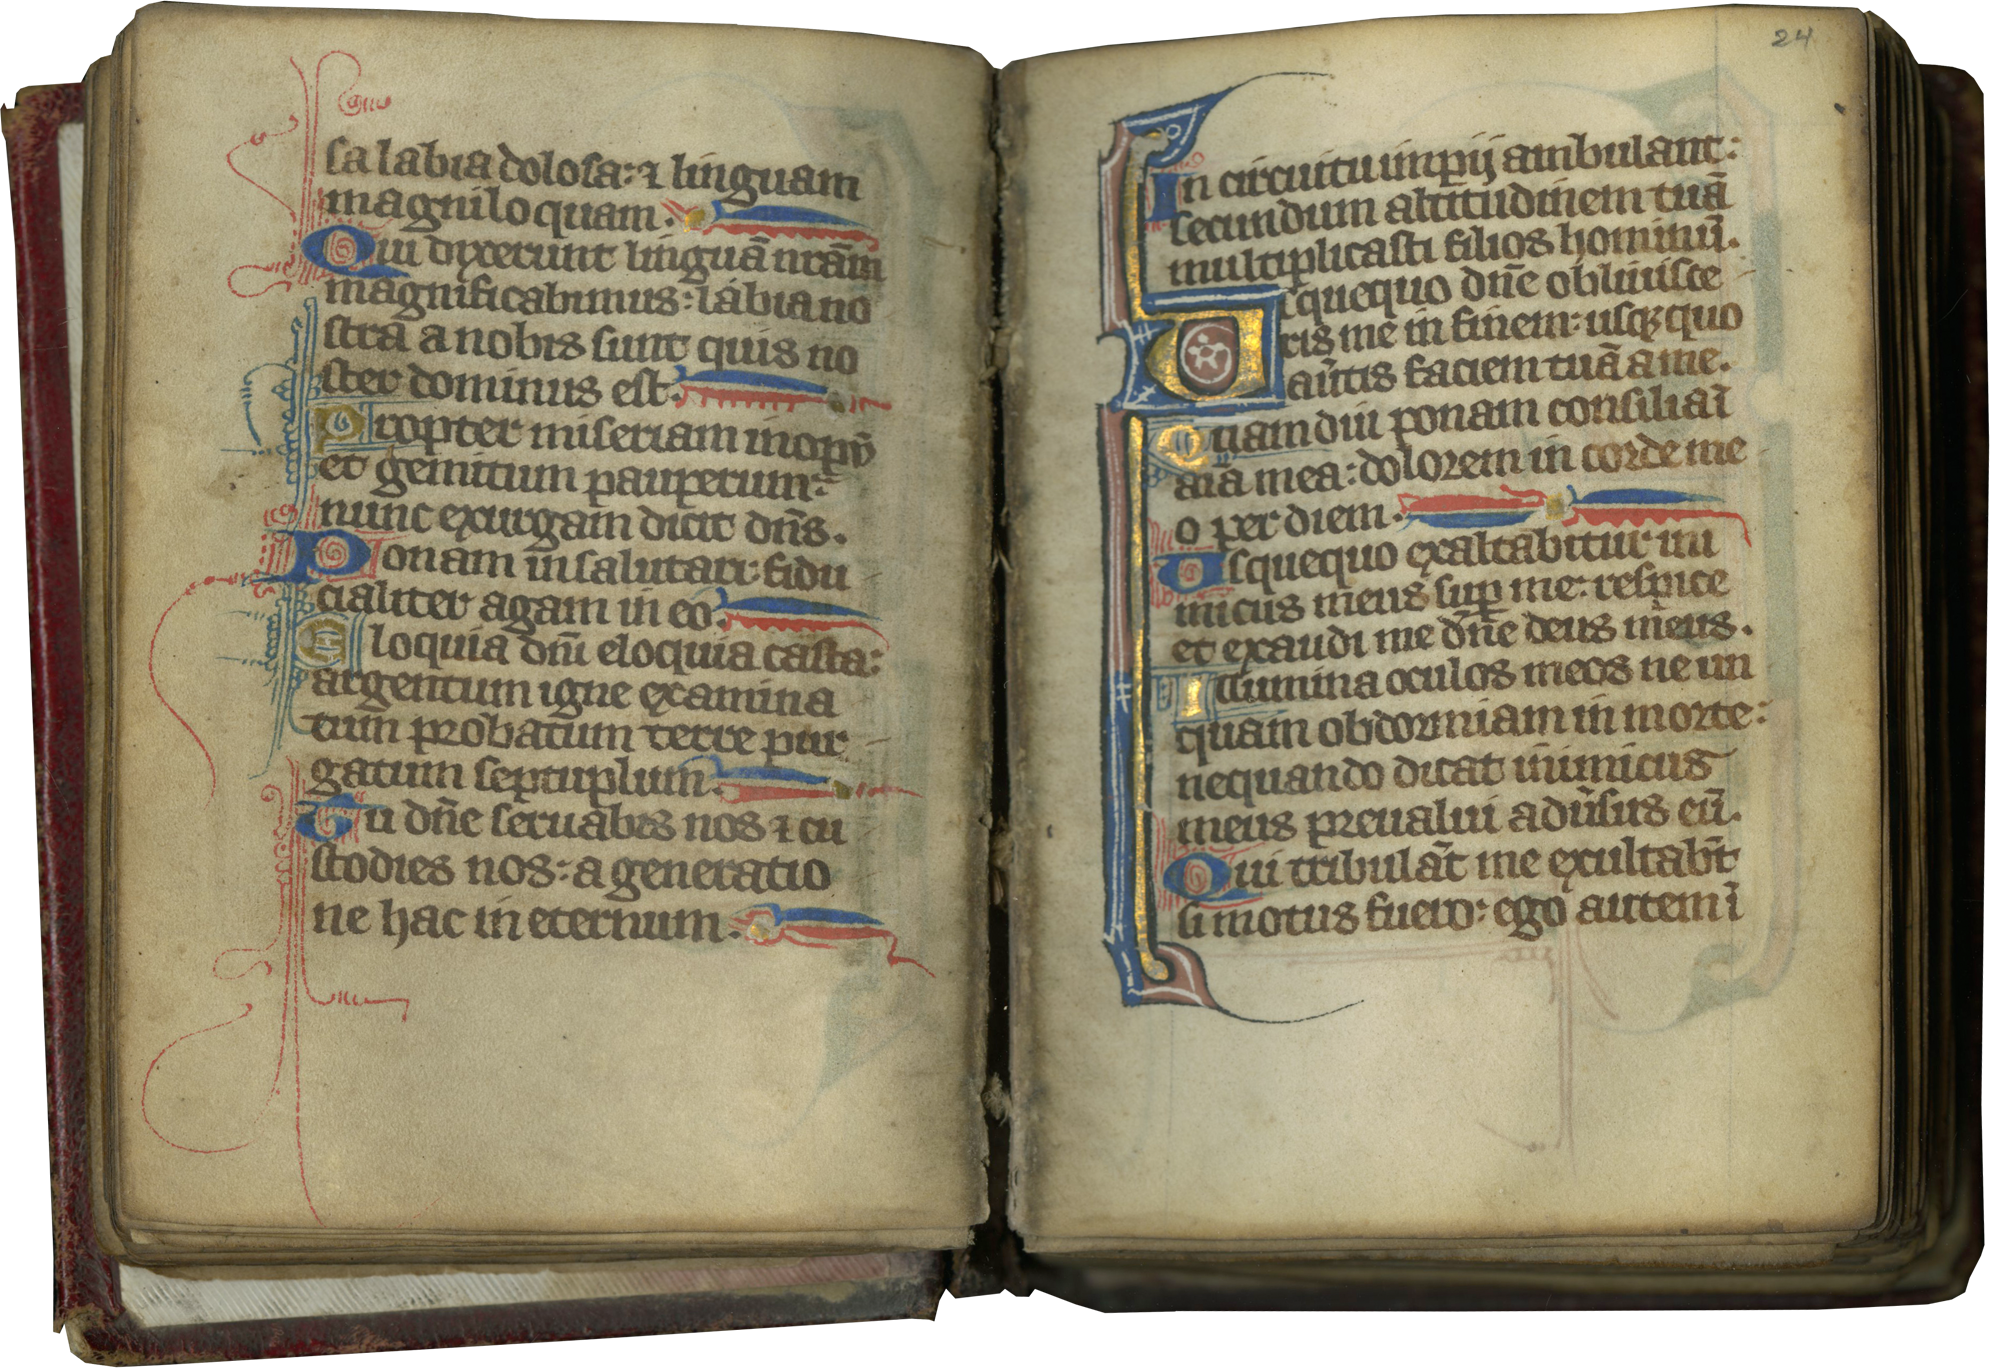 sa labia dolosa: ⁊ linguam
magniloquam.
Qui dixerunt linguā nr̄am
magnificabimus: labia no
stra a nobis sunt quis no
ster dominus est.
Propter miseriam inopū
et gemitum pauperum:
nunc exurgam dicit dn̄s.
Ponam in salutari: fidu
cialiter agam in eo.
Eloquia dn̄i eloquia casta:
argentum igne examina
tum probatum terre pur
gatum septuplum.
Tu dn̄e seruabis nos ⁊ cu
stodies nos: a generatio
ne hac in eternum.
24
In circuitu impij ambulant:
secundum altitudinem tuā
multiplicasti filios hominū.
Usquequo dn̄e obliuisce
ris me in finem: usqꝫ quo
au̾tis faciem tuā a me.
Quamdiu ponam consilia ī
aīa mea: dolorem in corde me
o per diem.
Usquequo exaltabitur ini
micus meus suꝑ me: respice
et exaudi me dn̄e deus meus.
Illumina oculos meos ne un
quam obdormiam in morte:
nequando dicat inimicus
meus preualui adu̾sus eū.
Qui tribulāt me exultabn̄t
si motus fuero: ego autem ī